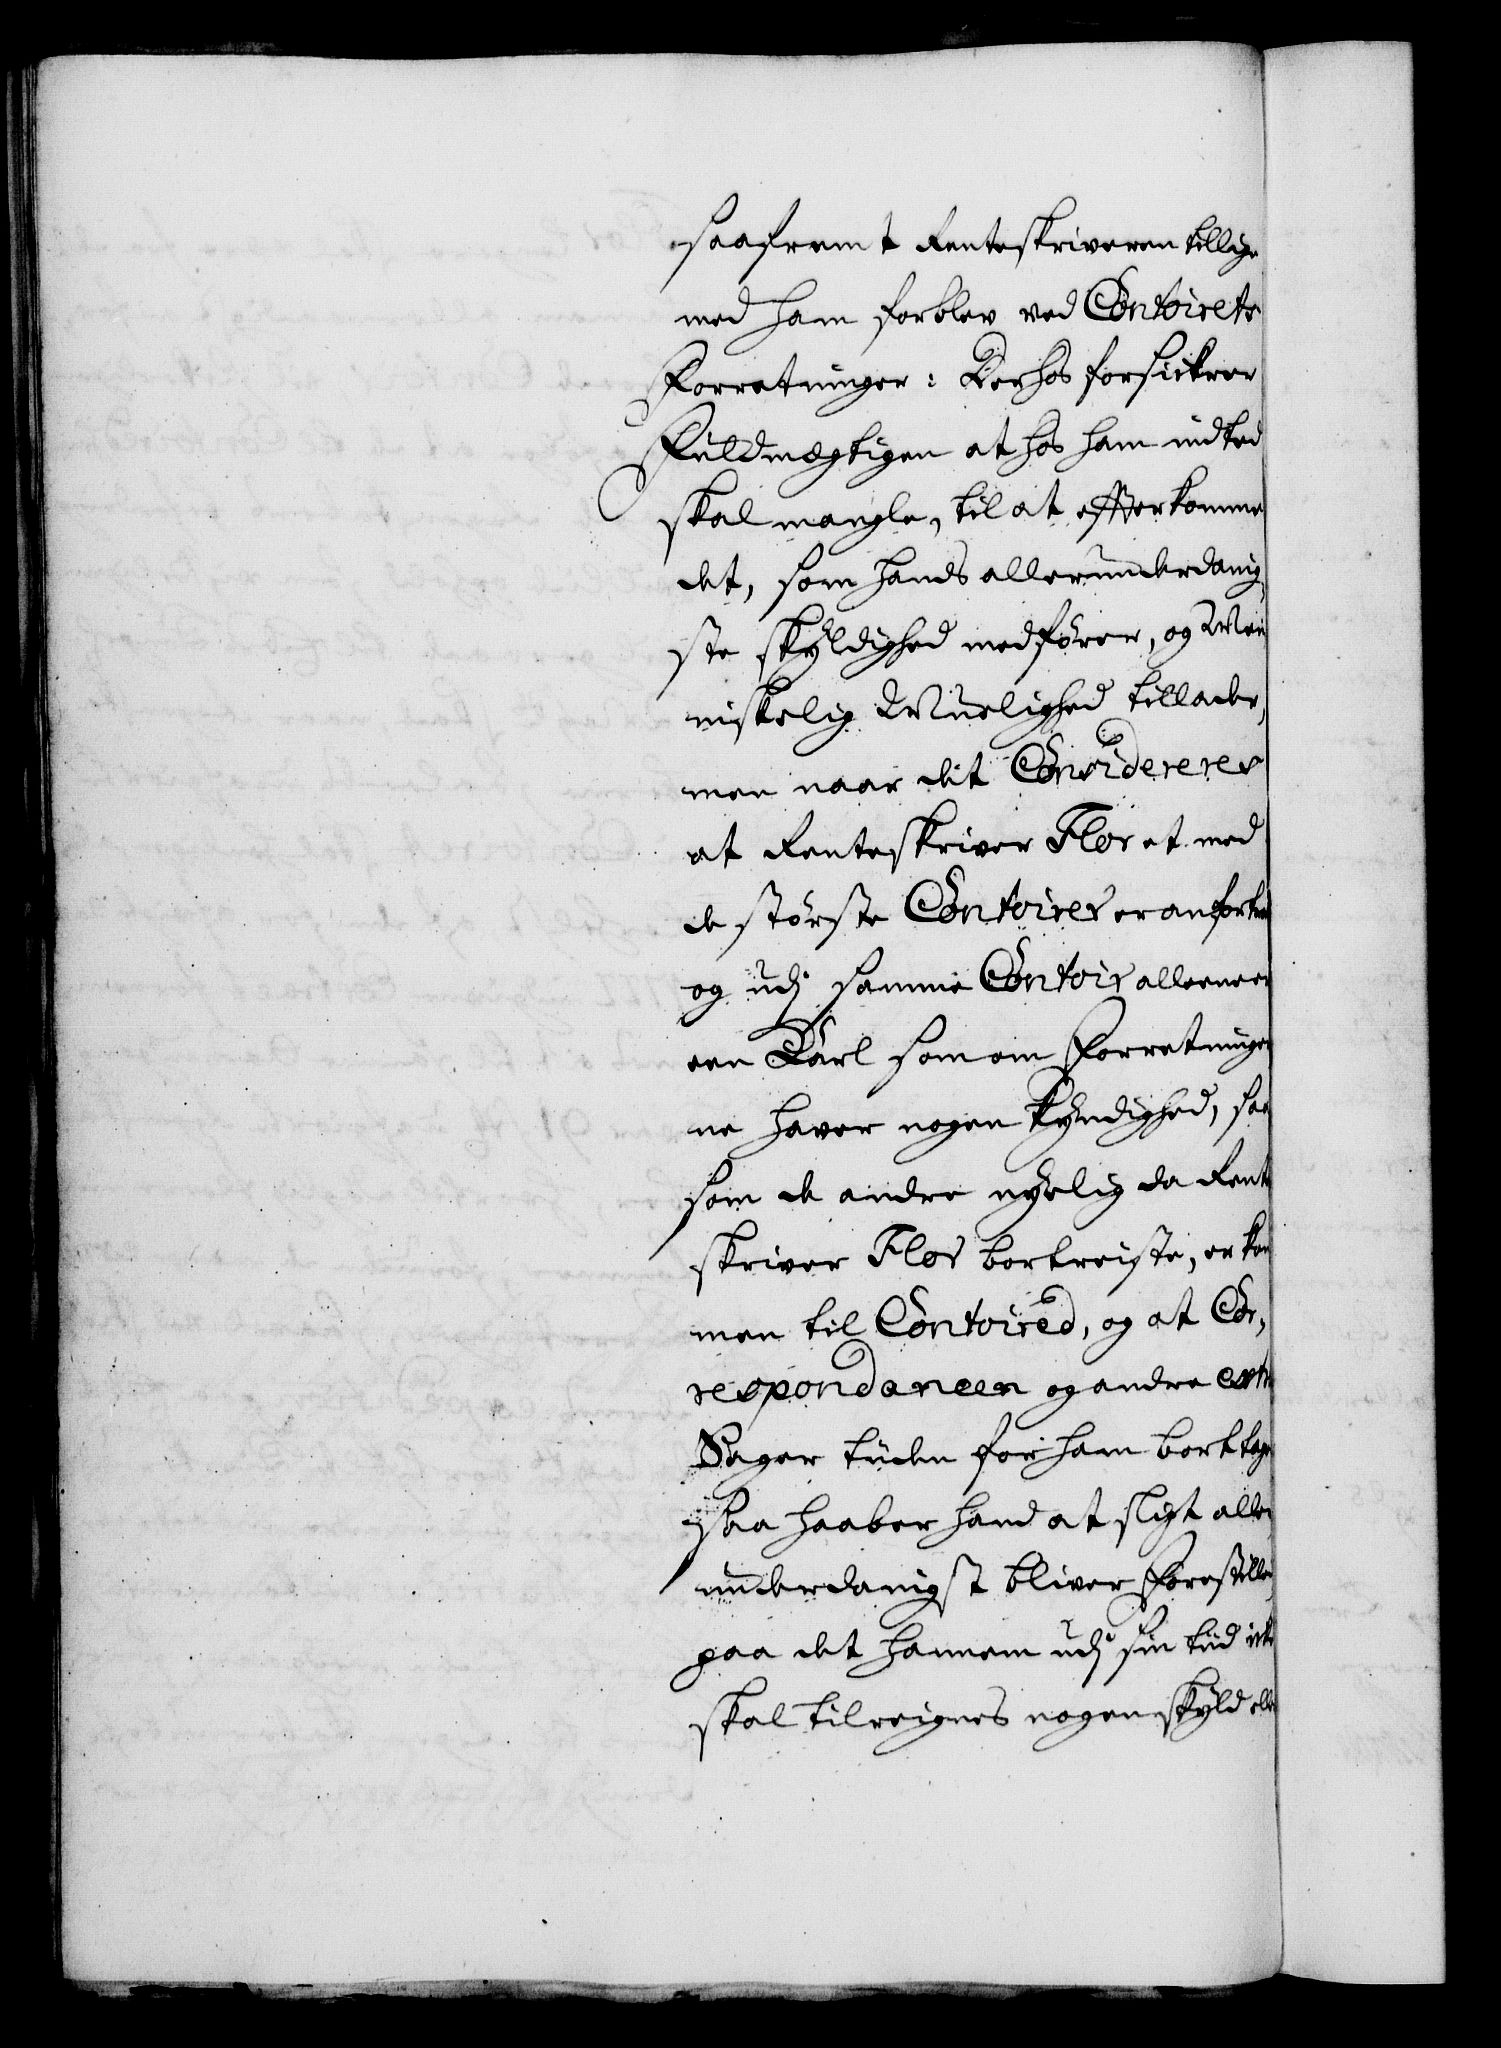 saafremt Renteskriveren tillige
med ham forblev ved Contoirets
Forretninger: Derhos forsickrer
Fuldmægtigen at hos ham indted
skal mangle, til at effterkomme
det, som hands allerunderdanig,
ste skyldighed medfører, og Men
niskelig Muelighed tillader,
men naar det Considereres
at Renteskriver Flor et med
de største Contoirer er anfortroed
og udj samme Contoir alleene er
een Karl som om Forretninger
ne haver nogen kyndighed, saa
som de andre nyelig da Rente
skriver Flor bortreiste, er kom
men til Contoired, og at Cor,
respondancen og andre extra
Sager tiiden for ham borttager
saa haaber hand at sligt aller
underdanigst bliver Forestilled
paa det hannem udj sin tiid icke
skal tilreignes nogen skyld eller